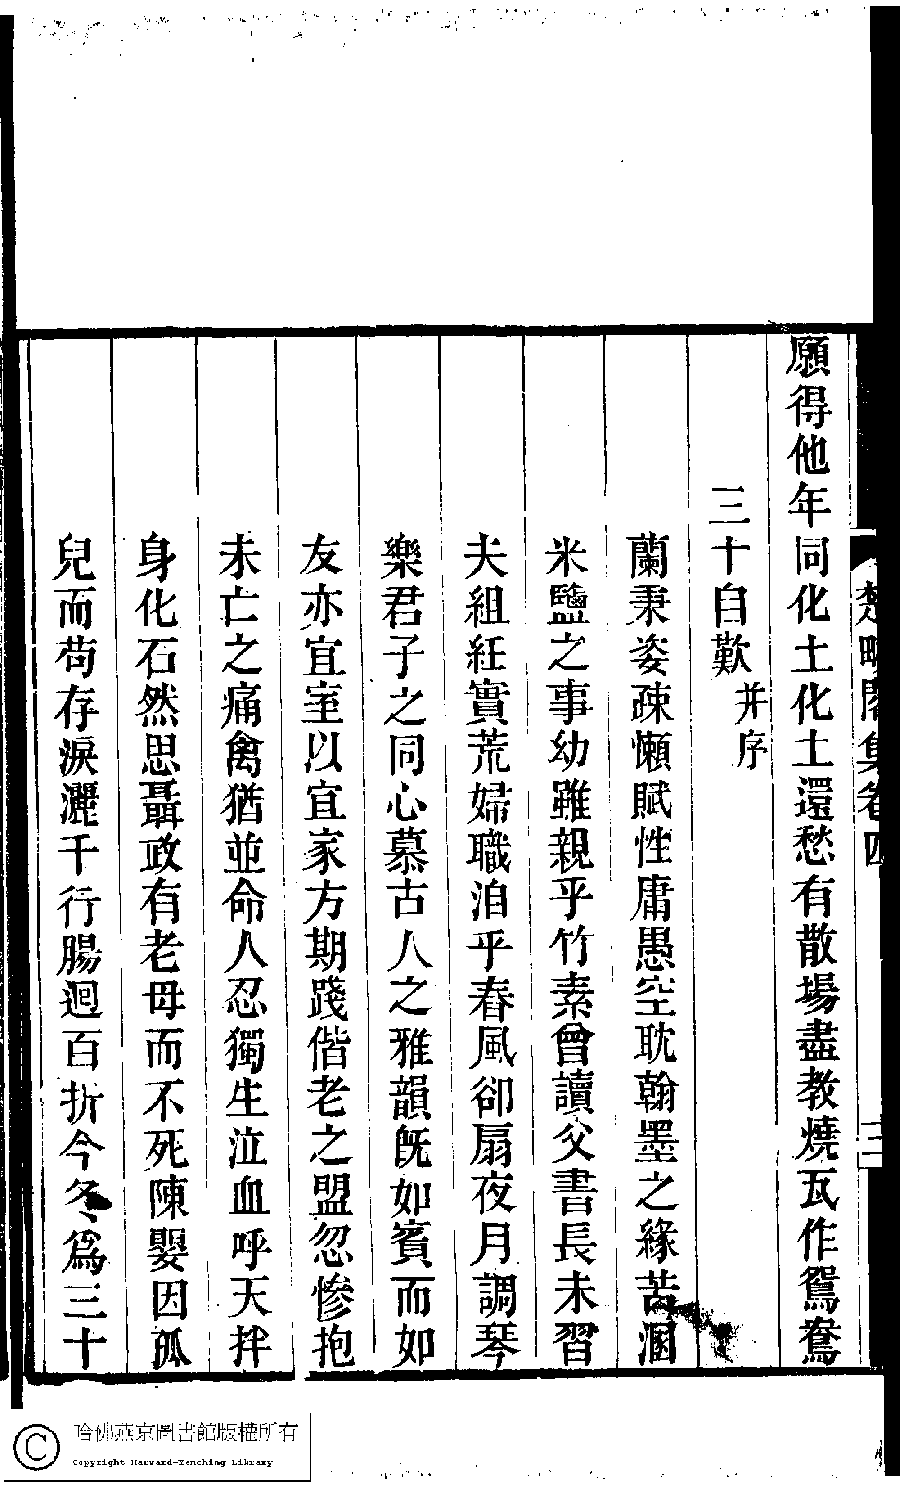 願得他年同化土化土還愁有散場盡教燒瓦作鴛鴦
三十自歎并序
蘭秉姿疎懶賦性庸愚空耽翰墨之緣苦溷
米鹽之事幼雖親乎竹素曾讀父書長未習
夫組紝實荒婦職洎乎春風卻扇夜月調琴
樂君子之同心慕古人之雅韻旣如賓而如
友亦宜室以宜家方期踐偕老之盟忽慘抱
未亡之痛禽猶並命人忍獨生泣血呼天拌
身化石然思聶政有老母而不死陳嬰因孤
兒而苟存淚灑千行腸迴百折今冬爲三十
集卷四
三
哈佛燕京圖書館版權所有
Copyright Harvard-Yenching Library